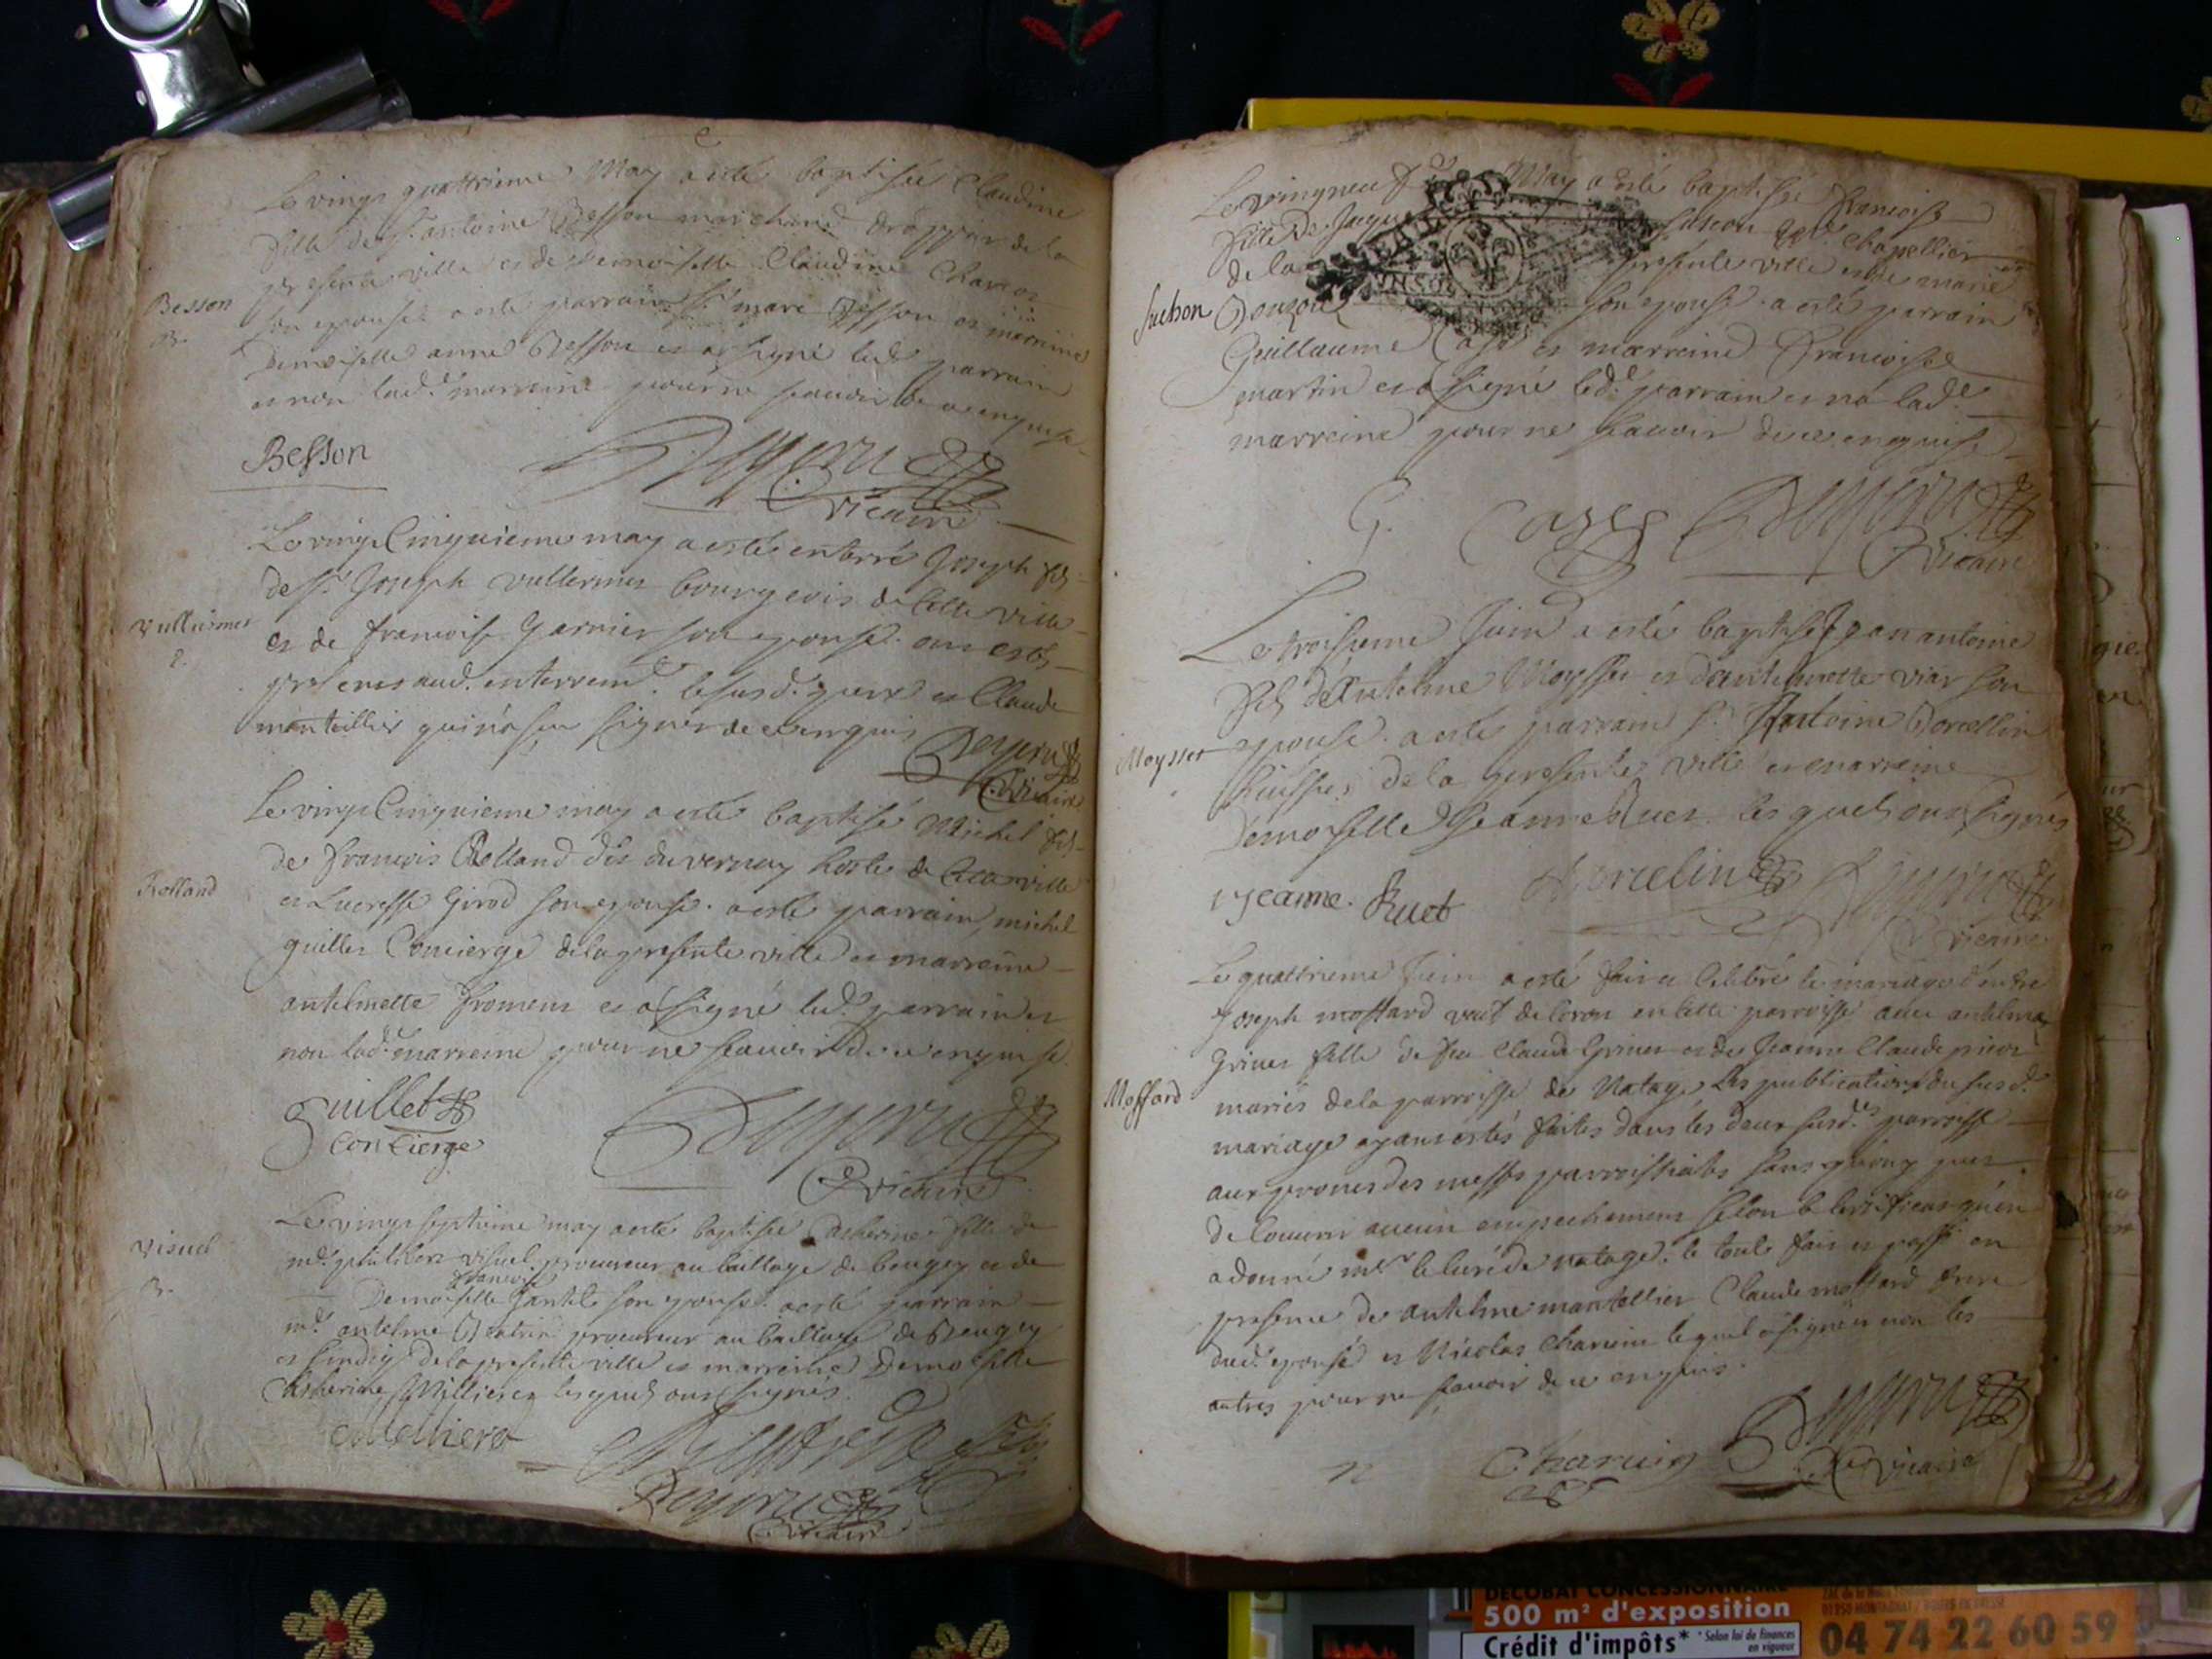 Le vingt quattrieme May a esté baptisée Claudine
fille de Sr. antoine Besson marchand drappier de la
presente ville et de demoiselle Claudine Charcot
son epouse a esté parrain Sr. marc Besson et marraine
Demoiselle anne Besson et a signé led. parrain
et non lad.e marraine pour ne scavoir de ce enquise
Besson
B.
Besson
Deyeru
vicaire
Le vingt Cinquieme may a esté enterré Joseph fils
de Sr. Joseph vullermet bourgeois de Cette ville
et de francoise Garnier son epouse. ont estés
presents aud. enterremt. le susd. pere et Claude
mantellier qui n'a sceu signer de ce enquis
Vulliermet
Deyeru
vicaire
Le vingt Cinquieme may a esté baptisé Michel fils
de francois Rolland dit du vernay hoste de Cette ville
et Lucresse Girod son epouse. a esté parrain michel
guillet Concierge de la presente ville et marraine
antelmette froment et a signé led. parrain et
non lad.e marraine pour ne scavoir de ce enquise.
Rolland
guillet
concierge
Deyeru
vicaire
Le vingt septieme may a esté baptisée Catherine fille de
me. philibert visuel procureur au bailliage de beugey et de
francoise
Demoiselle Jantet son epouse. a esté parrain
me. antelme procureur au bailliage de Beugey
et sindiq de la presente ville et marraine Demoiselle
Catherine Millieret lesquels ont signés.
visuel
B.
Deyeru
vicaire
Le vingneuf May a esté baptisé francoise
fille de Jaques Suchon Chapellier
de la presente ville et de marie
Douzou son epouse. a esté parrain
Guillaume Case et marraine francoise
martin et a signé led. parrain et no lad.e
marreine pour ne scavoir de ce enquise
Suchon
G. Cazes Deyeru
vicaire
Le troisieme Juin a esté baptisé Jean antoine
fils d'Antelme Moysset et d'antelmette viar son
epouse. a esté parrain Sr. Antoine Dorcellin
huissier de la presente ville et marreine
Demoiselle Jeanne Ruet. les quels ont signés
Moysset
Jeanne. Ruet
Dorcelin
Deyeru
vicaire
Le quattrieme Juin a esté fait et Celebré le mariage d'entre
Joseph moffard veuf de Coron en Cette parroisse avec antelme
Grinet fille de feu Claude Grinet et de Jeanne Claude
mariés de la parroisse de Natage. Les publications du susd.
mariage ayant estés faites dans les deux susd.es parroisse
aux prones des messes parroissiales sans qu'on y eut
decouvert aucun empechement selon le certificat qu'en
a donné mr. le Curé de natage. le toute fait et passé en
presence de antelme mantellier Claude moffard frere
dud. epousé et Nicolas Charcuin lequel a signé et non les
autres pour ne scavoir de ce enquis.
Moffard
Charcuin
Deyeru
vicaire
DECOBAT CONCESSIONNAIRE
500 m² d'exposition
Crédit d'impôts* *Selon loi de finances
en vigueur
04 74 22 60 59